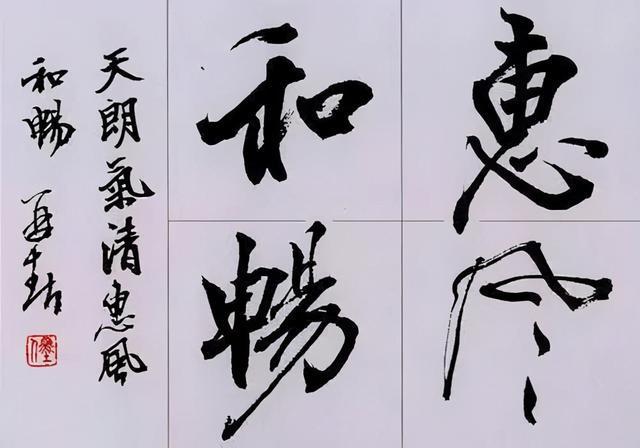 惠风
和暢
天朗氣清惠風
和暢